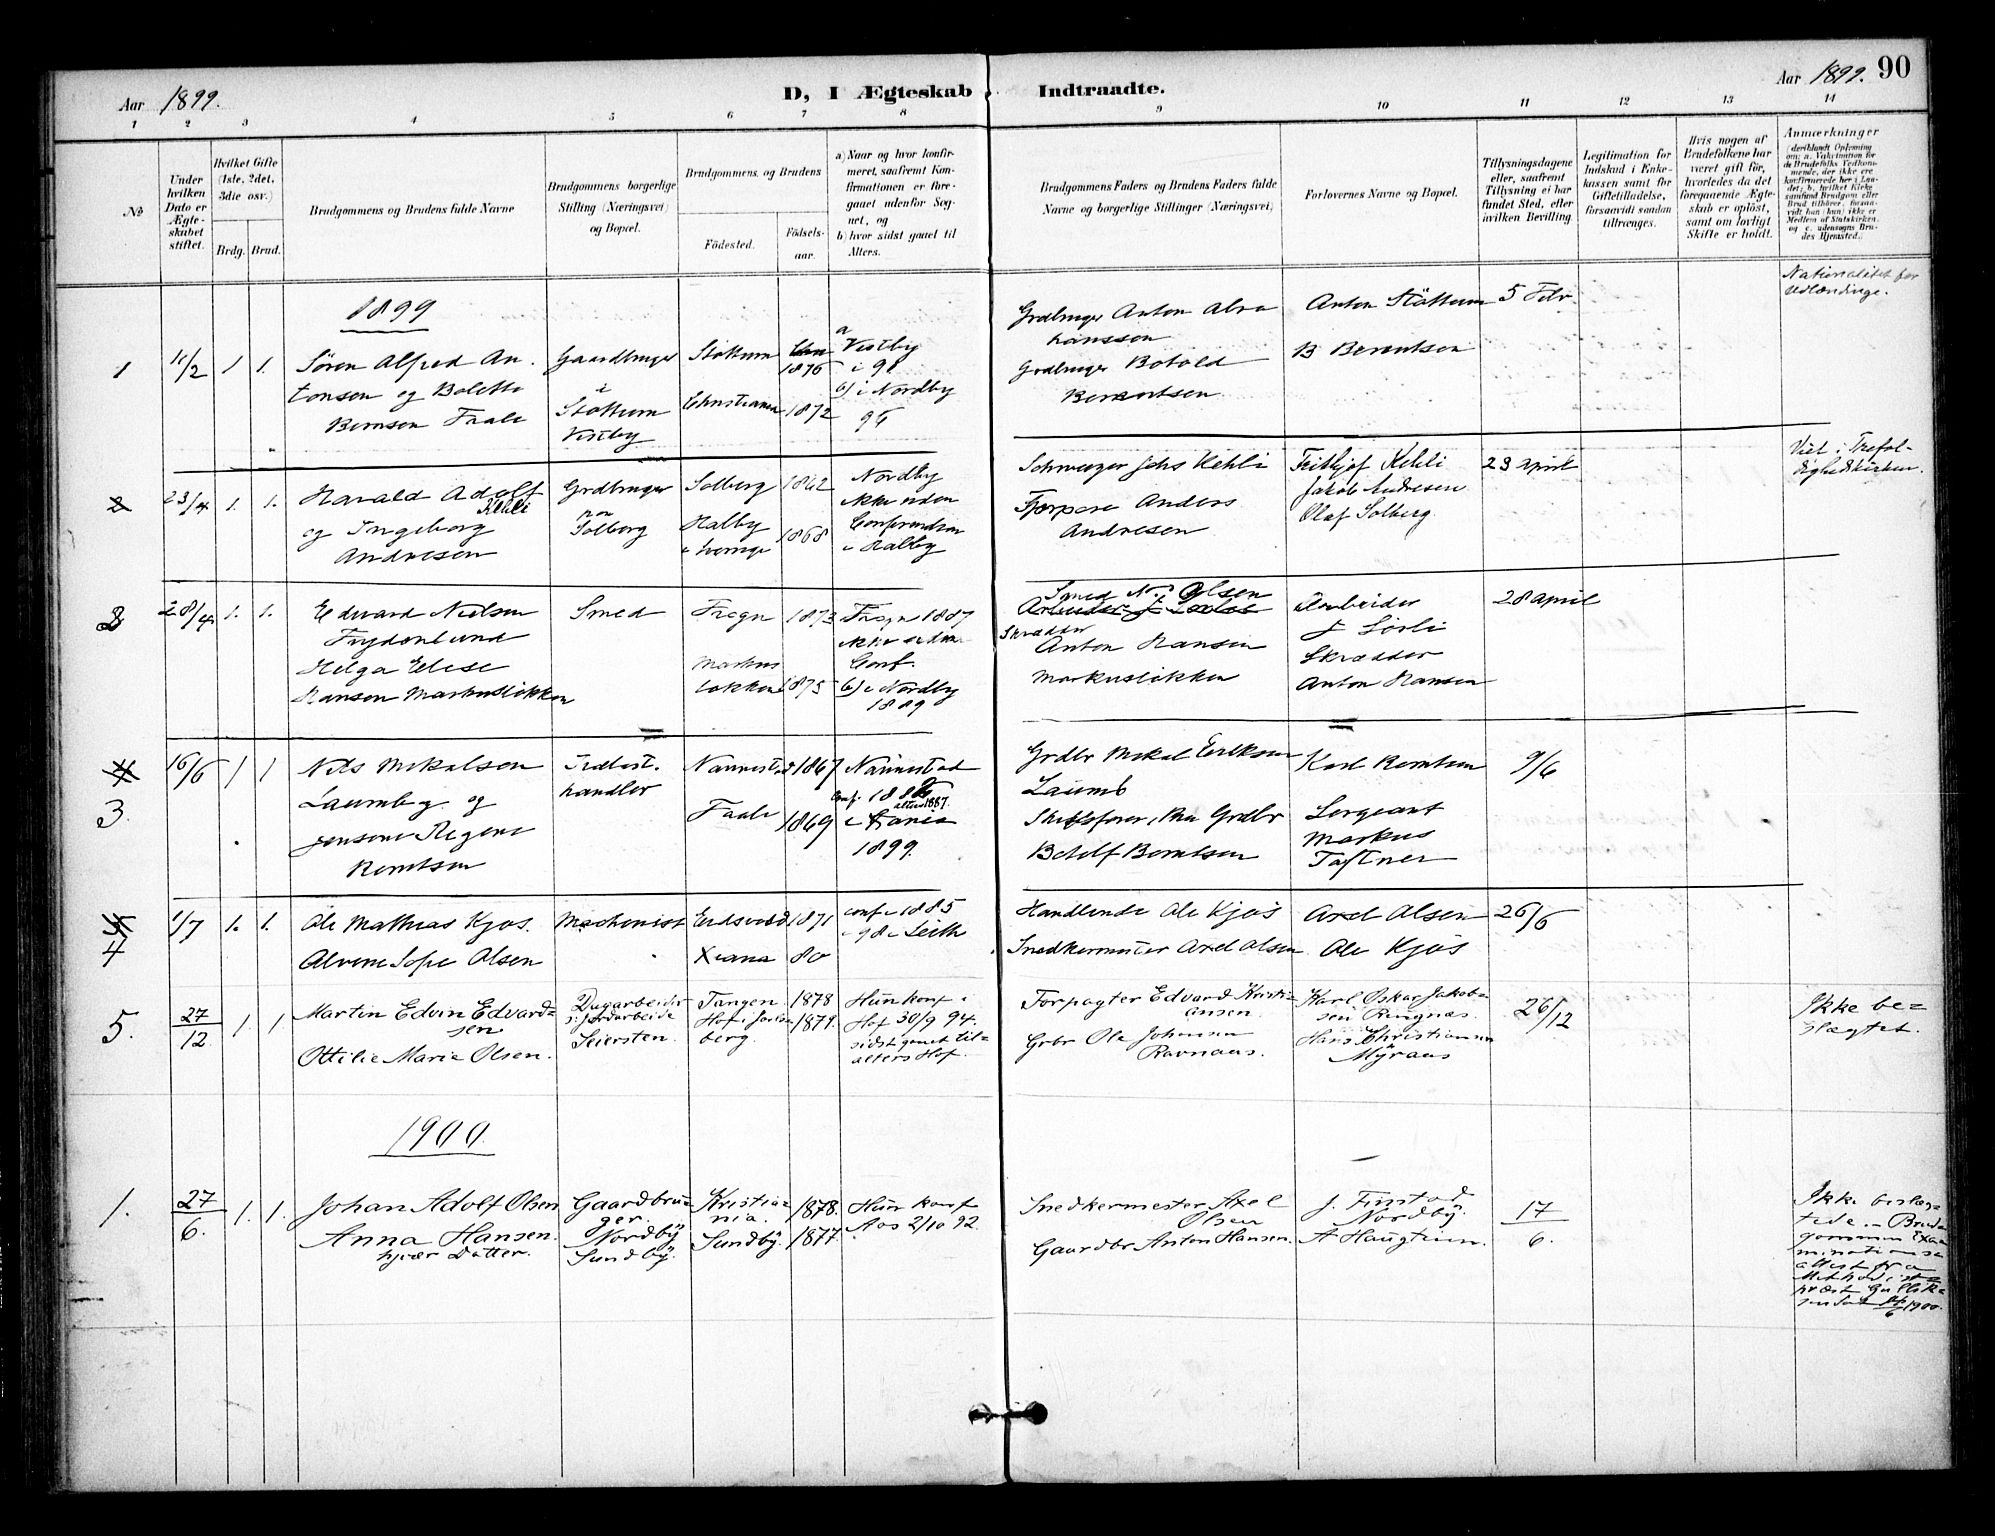 Aar 1899.
D, I Ægteskab Indtraadte.
Aar 1899. 90
1 2 3 4 5 6 7 8 9 10 11 12 13 14
№
Under hvilken Dato er Ægteskabet stiftet.
Hvilket Gifte (1ste, 2det, 3die osv.)
Brdg. Brud.
Brudgommens og Brudens fulde Navne
Brudgommens borgerlige Stilling (Næringsvei) og Bopæl.
Brudgommens og Brudens
Fødested.
Fødselsaar.
a) Naar og hvor konfirmeret, saafremt Konfirmationen er foregaaet udenfor Sognet, og
b) hvor sidst gaaet til Alters.
Brudgommens Faders og Brudens Faders fulde Navne og borgerlige Stillinger (Næringsvei)
Forlovernes Navne og Bopæl.
Tillysningsdagene eller, saafremt Tillysning ei har fundet Sted, efter hvilken Bevilling.
Legitimation for Indskud i Enkekassen samt for Giftetilladelse, forsaavidt saadan tiltrænges.
Hvis nogen af Brudefolkene har været gift før, hvorledes da det foregaaende Ægteskab er opløst, samt om lovligt Skifte er holdt.
Anmærkninger (deriblandt Oplysning om: a. Vakcination for de Brudefolks Vedkommende, der ikke ere konfirmerede her i Landet; b. hvilket Kirkesamfund Brudgom eller Brud tilhører, forsaavidt han (hun) ikke er Medlem af Statskirken, og c. udensogns Brudes Hjemsted.)
Nationalitet for Udlændinge.
1899
1 11/2 1 1.
Søren Alfred An
tonsen og Bolette
Bernsen Faale
Gaardbruger
i
Støttum
Vestby
Støttum 1876
Christiania 1872
a Vestby
i 91
b) i Nordby
Grdbruger Anton Abra
hamssen
Grdbruger Botold
Berentsen
Anton Støttum
B Berentsen
5 Febr
2 23/4 1. 1.
Harald Adolf
Kehli
og Ingeborg
Andresen
Grdbruger
Solberg
Solberg 1862
Halby
i Sverige 1868
Nordby
ikke uden
i Halby
Schweizer Johs Kehli
Anders
Andresen
Frithjof Kehli
Jakob Andresen
Olaf Solberg
23 april
Viet i Trefol-
dighedkirken.
28/4 1. 1.
Edvard Nielsen
Frydenlund
Helga Elise
Hansen Markusløkken
Smed
Frogn 1873
Markus
løkken 1875
Frogn 1887
Conf.
b) i Nordby
1889
Smed N. Olsen
Skrædder
Anton Hansen
Markusløkken
Arbeider
J Sørli
Skrædder
Anton Hansen
28 april
4
3
16/6 1 1
Nils Mikalsen
Laumb og
Jensene Regene
Berntsen
Trælast.
handler
Nannestad 1867
Faale 1869
Nannestad
alters 1887.
1899.
Grdbr Mikal Eriksen
Laumb
Skibsfører, Grdbr
Botolf Berntsen
Karl Berntsen
Sergeant
Markus
9/6
5
4
1/7 1. 1.
Ole Mathias Kjøs.
Alvine Sofie Olsen
Maskenist
Eidsvold 1871
Xiania 80
conf i 1885
i 98 i Leith
Handlende Ole Kjøs
Snedkermester Axel Olsen
Axel Olsen
Ole Kjøs
26/6
5. 27/12 1 1
Martin Edvin Edvard-
sen
Ottilie Marie Olsen.
Dagarbeider
v. jordarbeide
Seiersten.
Tangen 1878
Hof i Jarls-
berg. 1879.
Hun konf i
Hof 30/9 94.
sidst gaaet til-
alters Hof.
Forpagter Edvard Kristi-
ansen.
Grbr Ole Johnsen
Ravnaas.
Karl Oskar Jakob-
sen Ringnæs.
Hans Christiansen
Myraas
26/12
Ikke be-
slægtet.
1900.
1. 27/6. 1. 1.
Johan Adolf Olsen
Anna Hansen.
hver Datter.
Gaardbru-
ger.
Nordby
Sundby.
Kristia-
nia. 1878.
Sundby. 1877.
Hun konf
Aas 2/10 92.
Snedkermester Axel
Olsen
Gaardbr Anton Hansen.
J. Finstad
Nordby.
A Haugtun.
17/6.
Ikke beslæg-
tede. Brud-
gommens Exa-
minations-
attest fra
Methodist-
præst
1900.